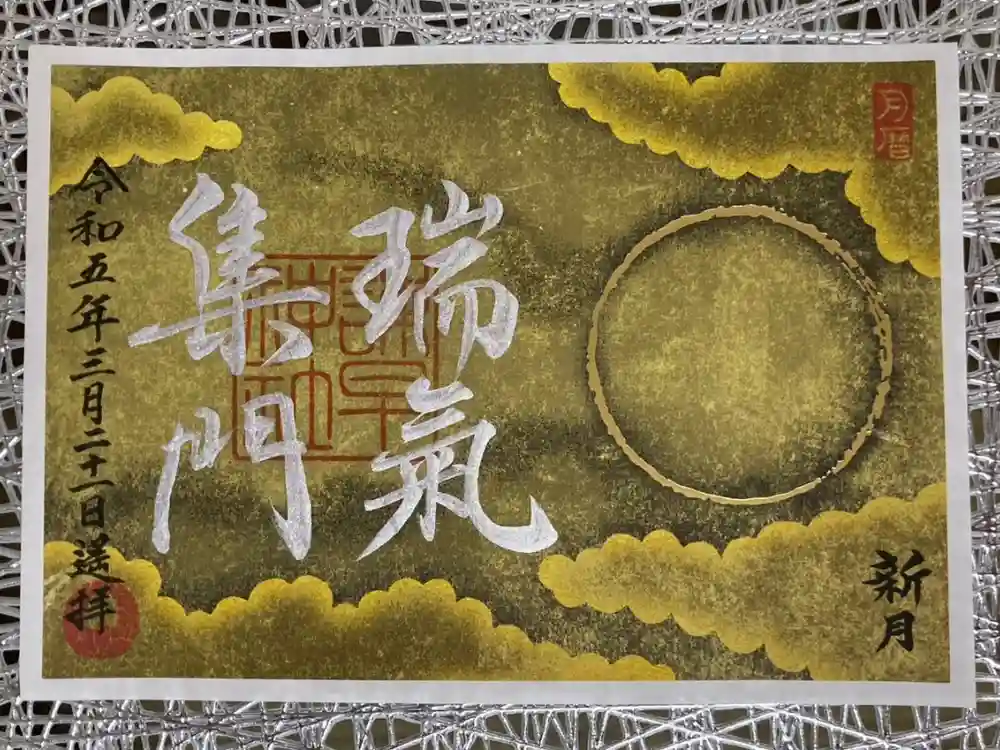 月暦
新月
瑞氣
集門
令和五年三月二十二日送拝